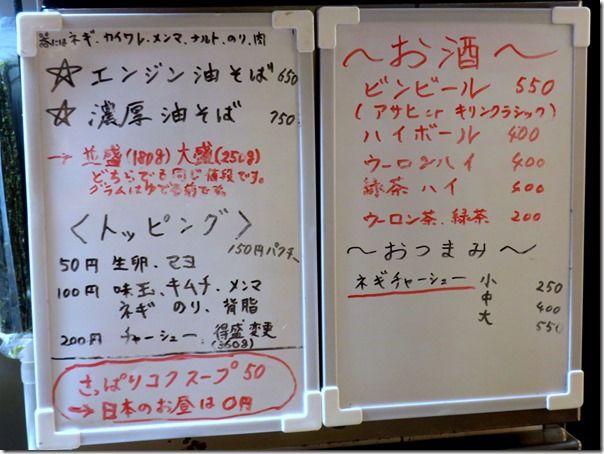 具には ネギ、カイワレ、メンマ、ナルト、のり、肉
☆ エンジン油そば 650
☆ 濃厚 油そば 750
→ 並盛(180g) 大盛(250g)
どちらでも同じ値段です。
グラムはゆでる前です。
〈トッピング〉
150円パクチー
50円 生卵、マヨ
100円 味玉、キムチ、メンマ
ネギ のり、背脂
200円 チャーシュー、得盛変更
(360g)
さっぱりコクスープ 50
→ 日本のお昼は0円
〜お酒〜
ビンビール 550
(アサヒ or キリンクラシック)
ハイボール 400
ウーロンハイ 400
緑茶ハイ 400
ウーロン茶、緑茶 200
〜おつまみ〜
ネギチャーシュー 小 250
中 400
大 550